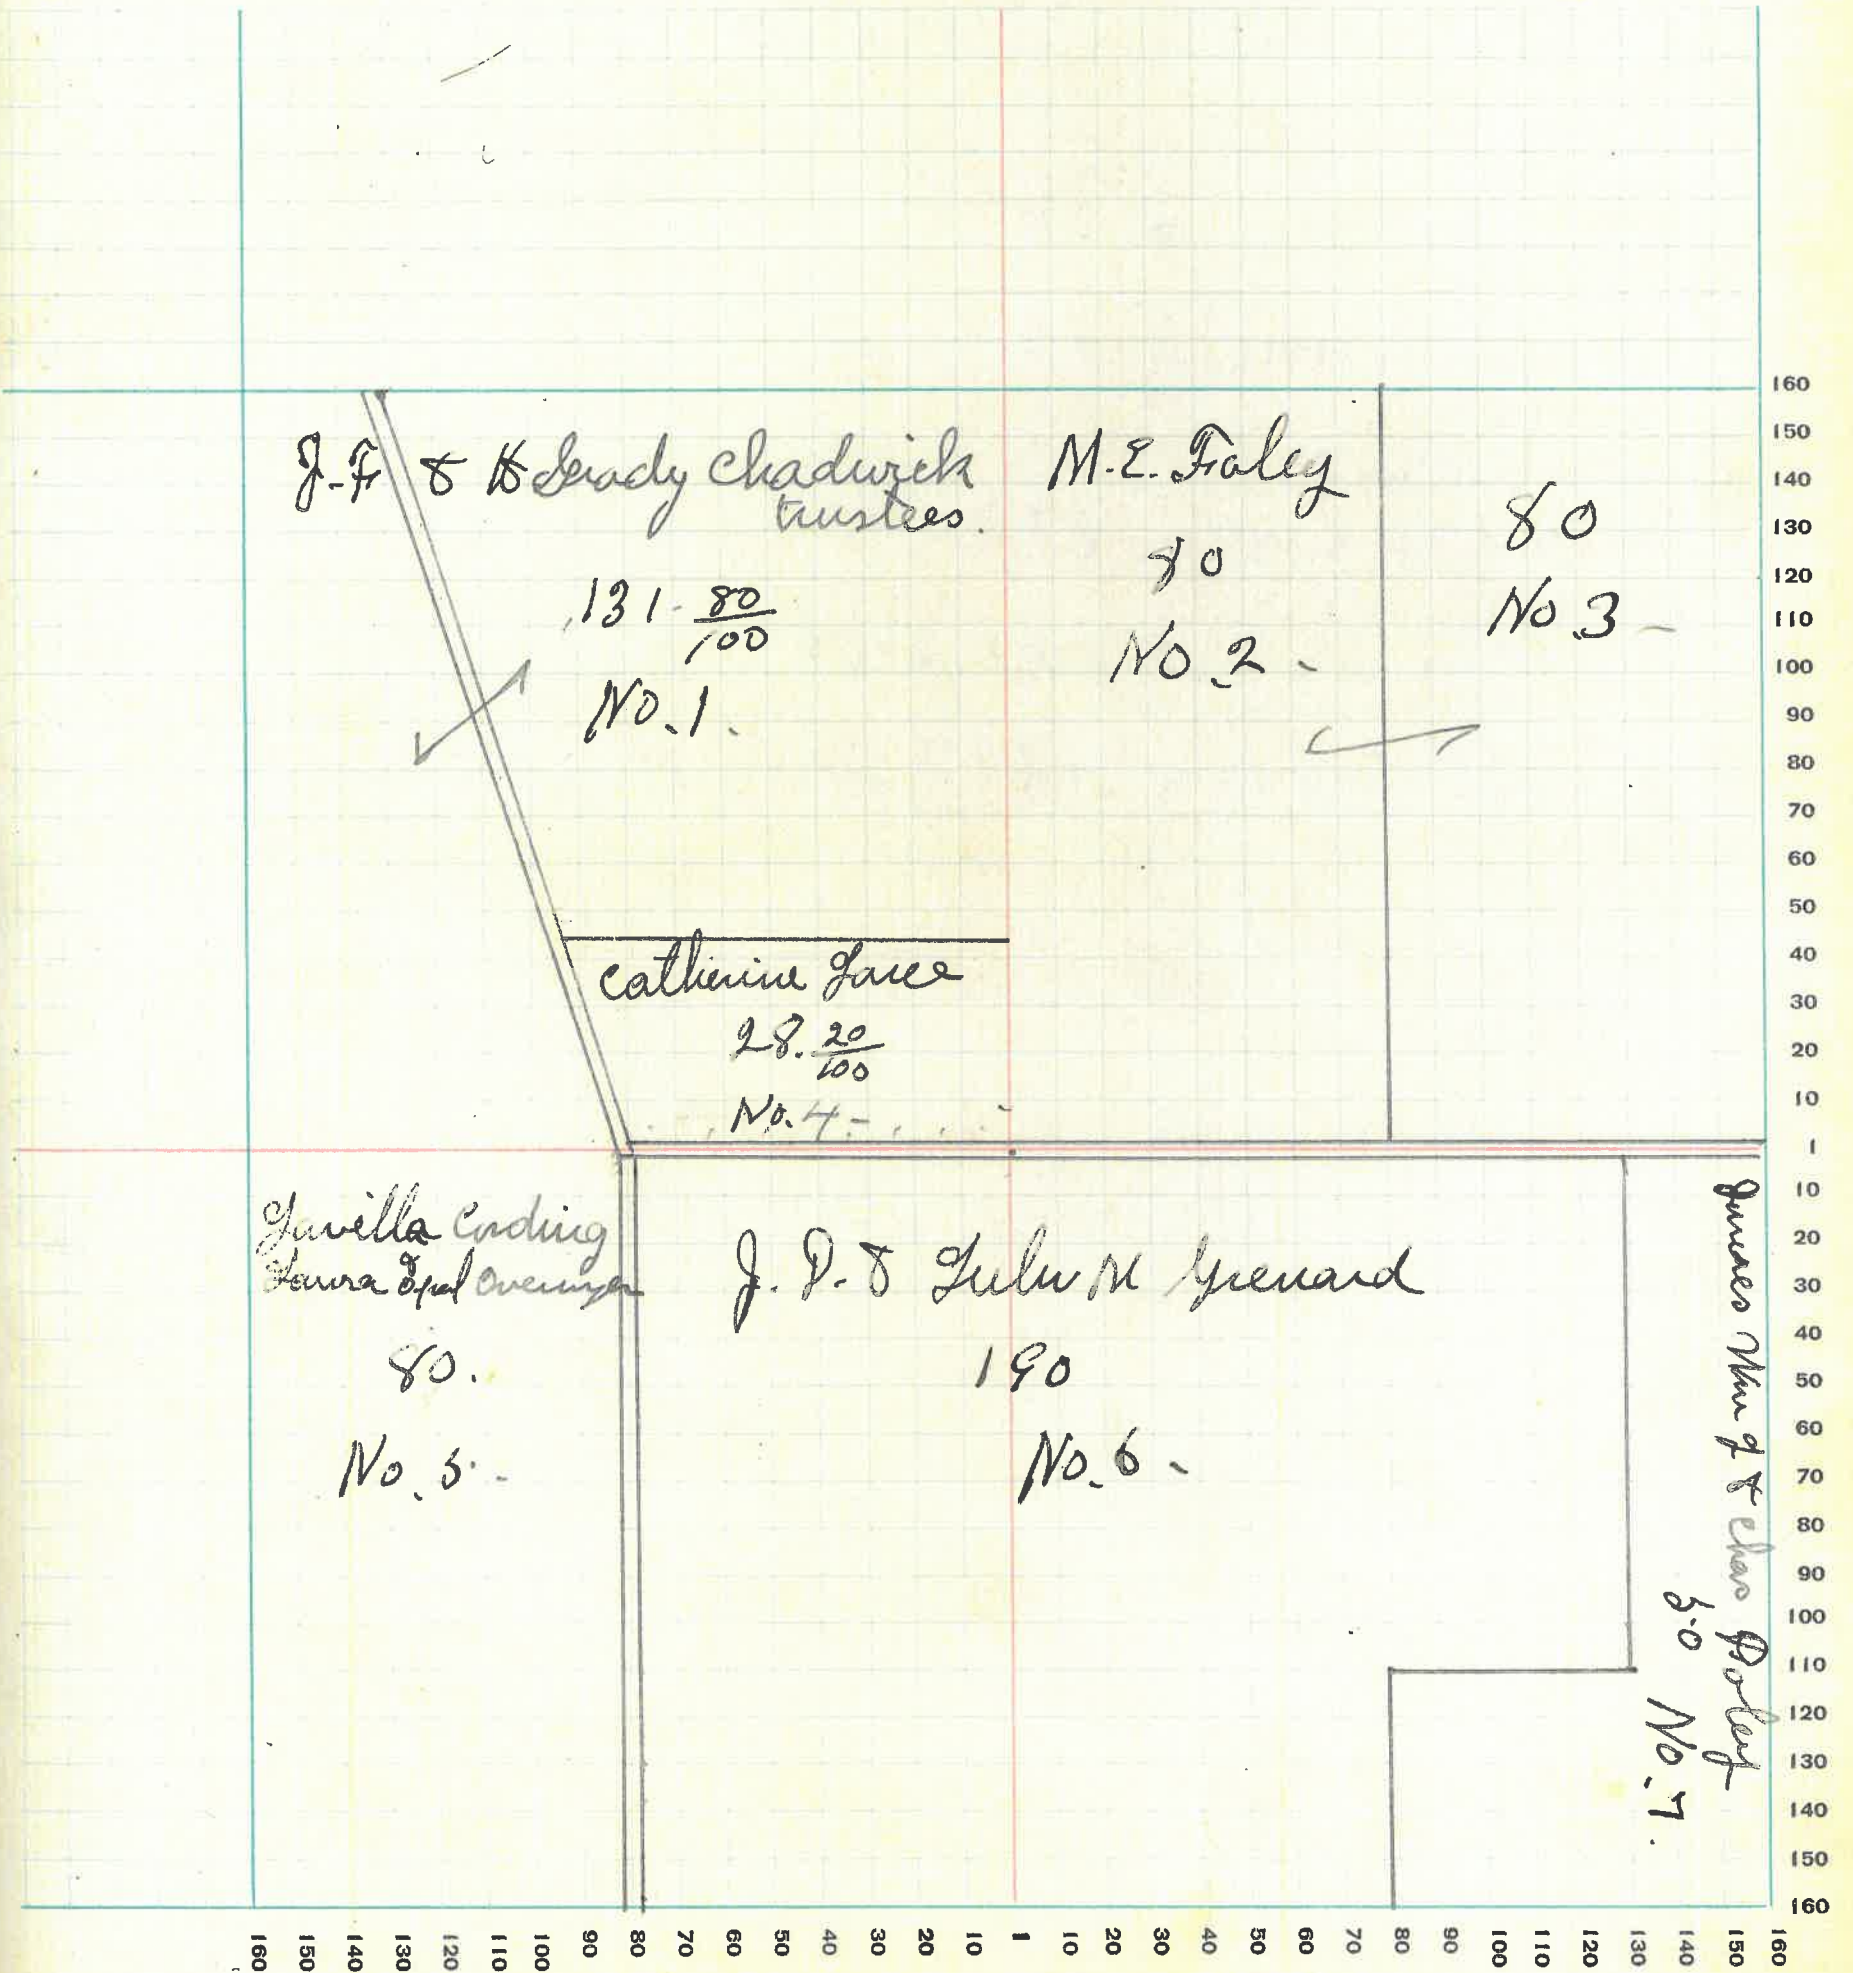 J. F. & H Grady Chadwick
trustees.
131 80/100
No. 1.
M. E. Foley
80
No. 2 -
80
No. 3 -
Catherine
28. 20/100
No. 4 -
Cording
Laura Opal Overmyer
80.
No. 5 -
J. D. & Lulu M Grenard
190
No. 6 -
& Chas
50
No. 7.
160
150
140
130
120
110
100
90
80
70
60
50
40
30
20
10
1
10
20
30
40
50
60
70
80
90
100
110
120
130
140
150
160
160 150 140 130 120 110 100 90 80 70 60 50 40 30 20 10 1 10 20 30 40 50 60 70 80 90 100 110 120 130 140 150 160